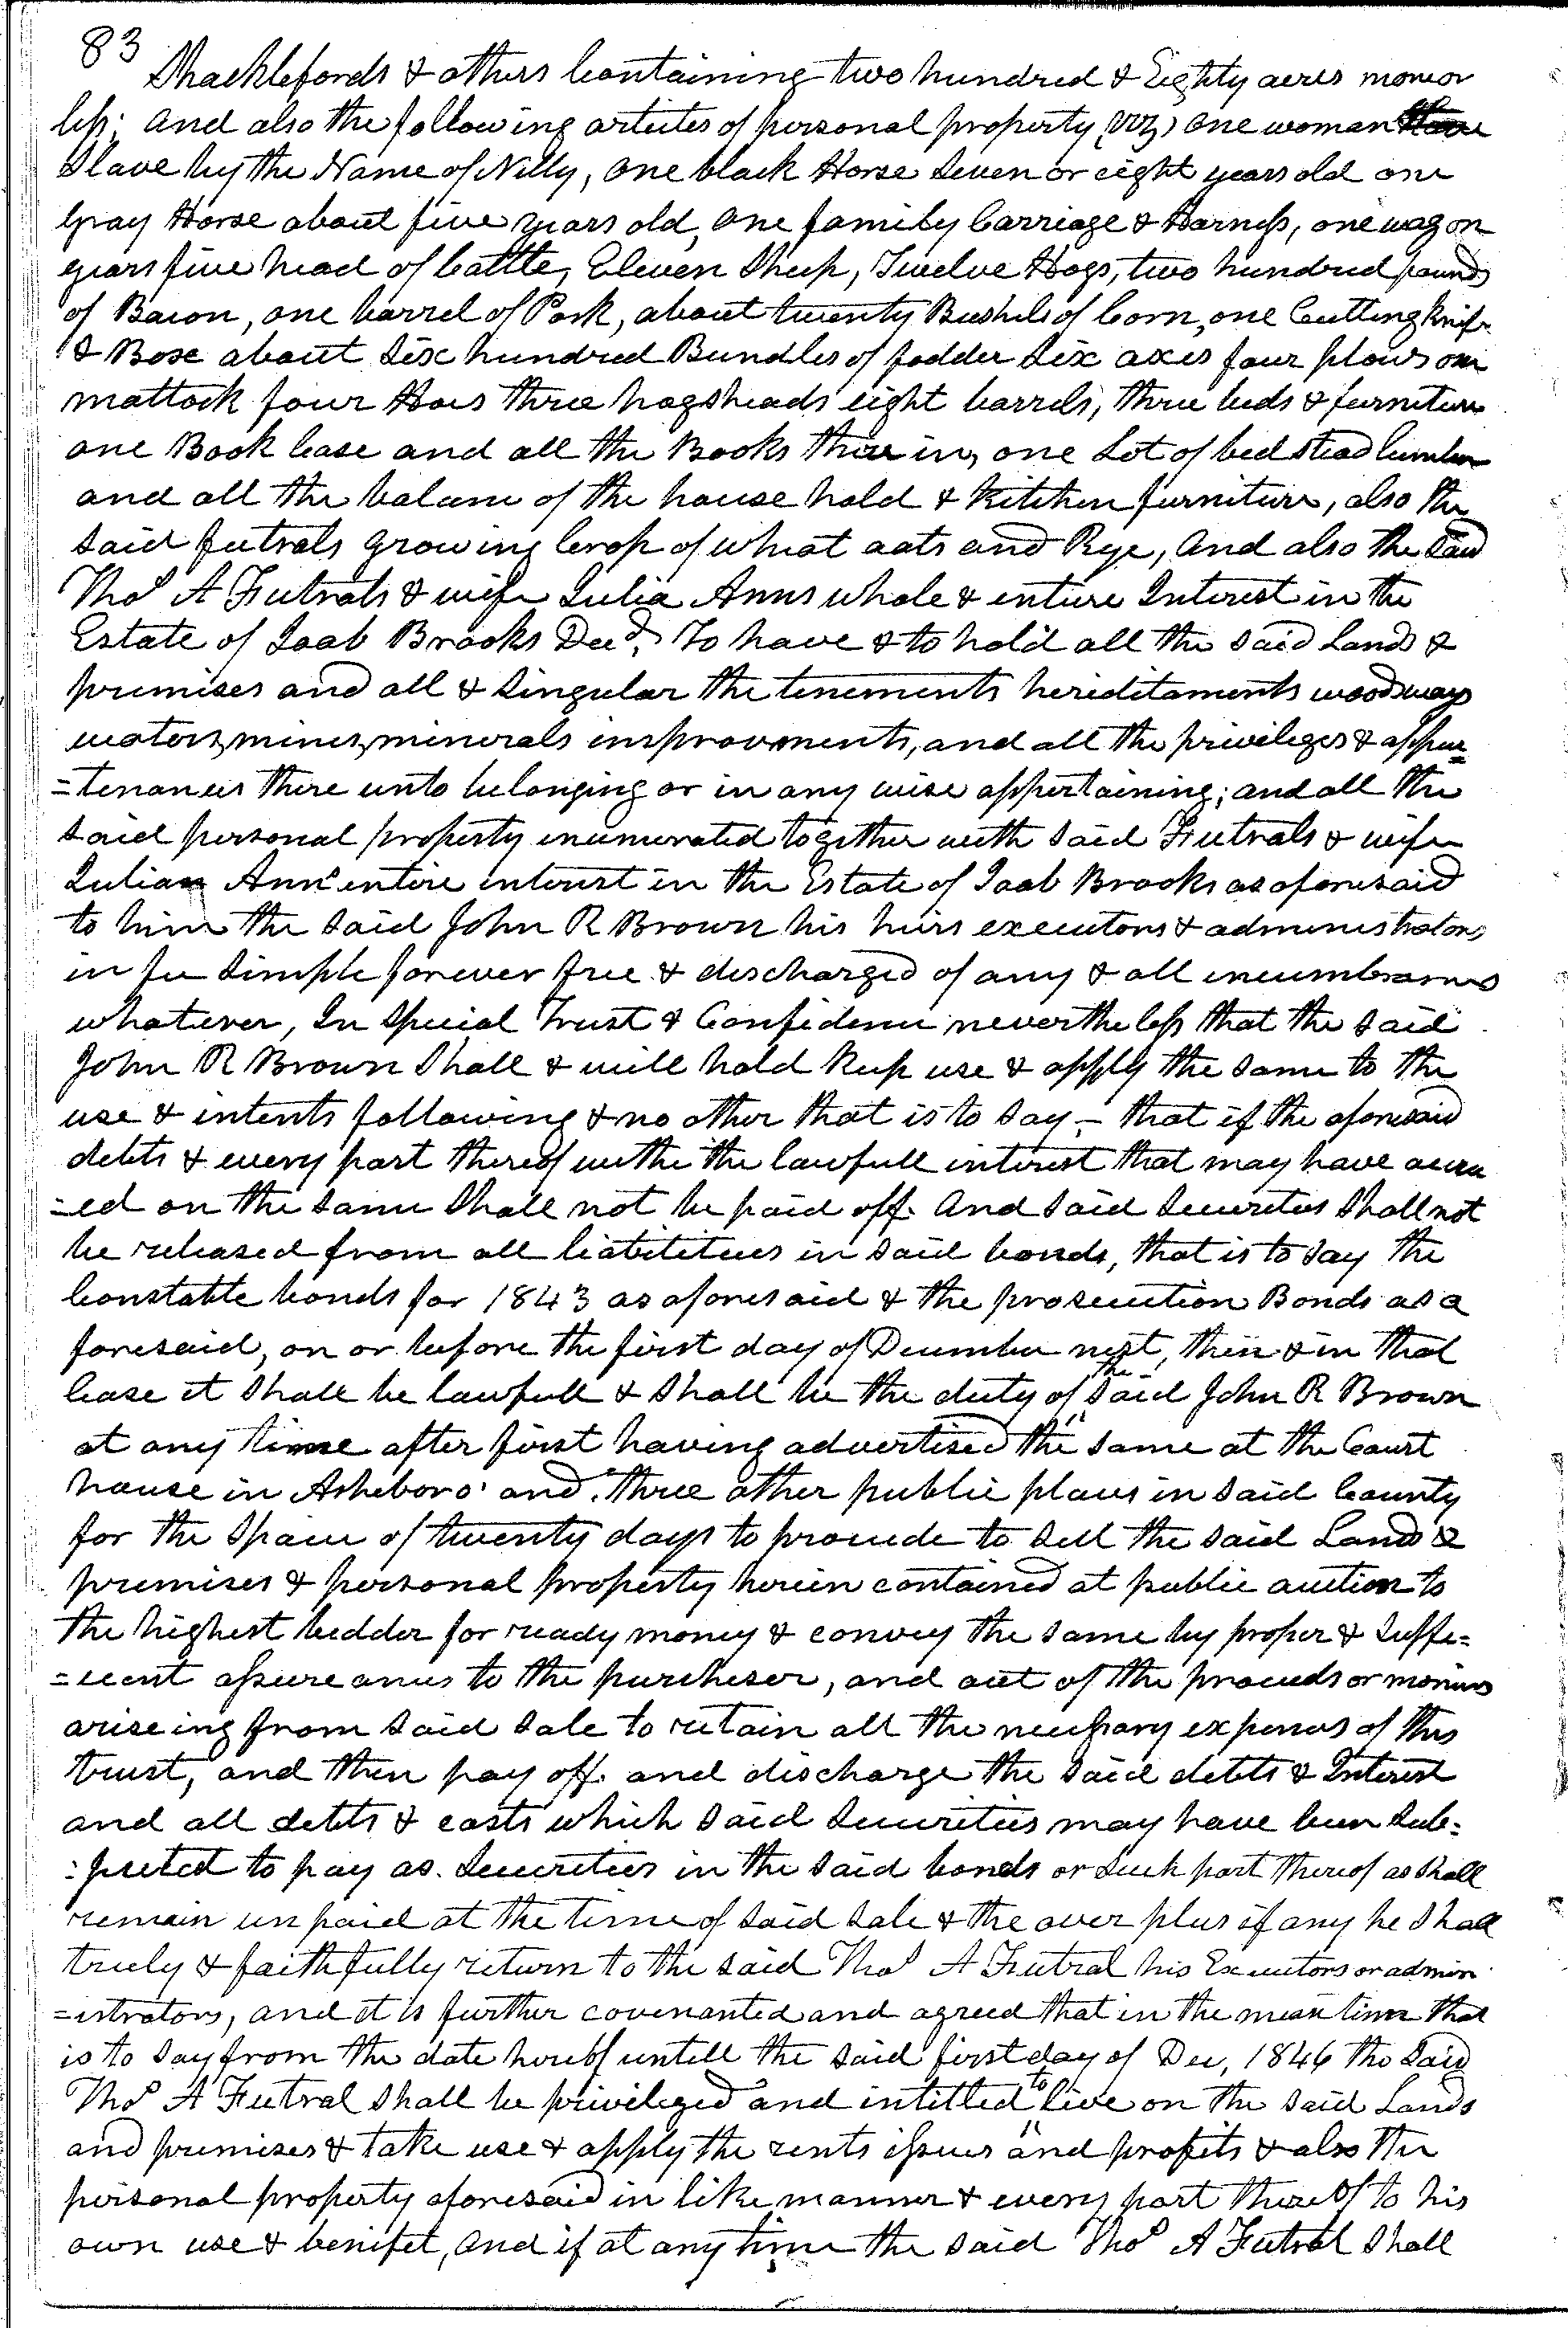 83
Shacklefords & others Containing two hundred & Eighty acres more or
less; and also the following artictes of personal property (viz) one woman
Slave by the Name of Nilly, one black Horse Seven or eight years old one
gray Horse about five years old, one family Carriage & Harness, one wagon
gears five head of Cattle, Eleven Sheep, Twelve Hogs, two hundred pounds
of Bacon, one barrel of Pork, about twenty Bushels of Corn, one Cutting Knife
& Boxe about Six hundred Bundles of fodder Six axes four plows one
mattock four Hoes three hogsheads eight barrels, three beds & furniture
one Book Case and all the Books there in, one Lot of bed stead lumber
and all the balance of the house hold & Kitchen furniture, also the
said Futrals growing Crop of wheat oats and Rye, And also the said
Thos A Futrals & wife Julia Anns whole & entire Interest in the
Estate of Joab Brooks Decd, To have & to hold all the said Lands &
premises and all & Singular the tenements hereditaments woods ways
waters, mines, minerals improvments, and all the privileges & appur
=tenances there unto belonging or in any wise appertaining; and all the
said personal property enumerated together with said Futrals & wife
Julian Anns entire interest in the Estate of Joab Brooks as aforesaid
to him the said John R Brown his heirs executors & administrators
in fee Simple forever free & discharged of any & all incumbrances
whatever, In Special Trust & Confidence never the less that the said
John R Brown Shall & will hold Keep use & apply the same to the
use & intents following & no other that is to say,- that if the aforesaid
debts & every part thereof withe the lawfull interest that may have accru
=ed on the same Shall not be paid off. And said Securities Shall not
be released from all liabilitiues in said bonds, that is to say the
Constatle bonds for 1843 as aforesaid & the prosecution Bonds as a
foresaid, on or before the first day of December next, then & in that
Case it Shall be lawfull & Shall be the duty of the said John R Brown
at any time after first having advertised the same at the Court
house in Asheboro' and three other public places in said County
for the Space of twenty days to procede to Sell the said Lands &
premises & personal property herein contained at public auction to
the highest bidder for ready money & convey the same by proper & Suffi=
=cient assureances to the purcheser, and out of the proceeds or monies
ariseing from said Sale to retain all the necessary expences of this
trust, and then pay off. and discharge the said debts & Interest
and all debts & costs which said Securities may have been Sub=
=jected to pay as Securities in the said bonds or such part thereof as Shall
remain un paid at the time of said sale & the over plus if any he Shall
truly & faithfully return to the said Thos A Futral his Executors or admin
=istrators, and it is further covenanted and agreed that in the mean time that
is to say from the date hereof untill the said first day of Dec, 1846 the said
Thos A Futral Shall be privileged and intitled to live on the said Lands
and premises & take use & apply the rents issues and profits & also the
personal property aforesaid in like manner & every part thereof to his
own use & benifet, and if at any time the said Thos A Futral Shall